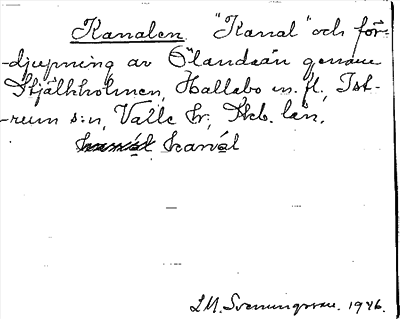 Kanalen "Kanal" och för-
-djupning av Ölandsån genom
Stjälkholmen, Hallebo m. fl., Ist-
-rum s:n, Valle hr, Skb. län.
kanál kanál
J.M. Svenungsson. 1946.